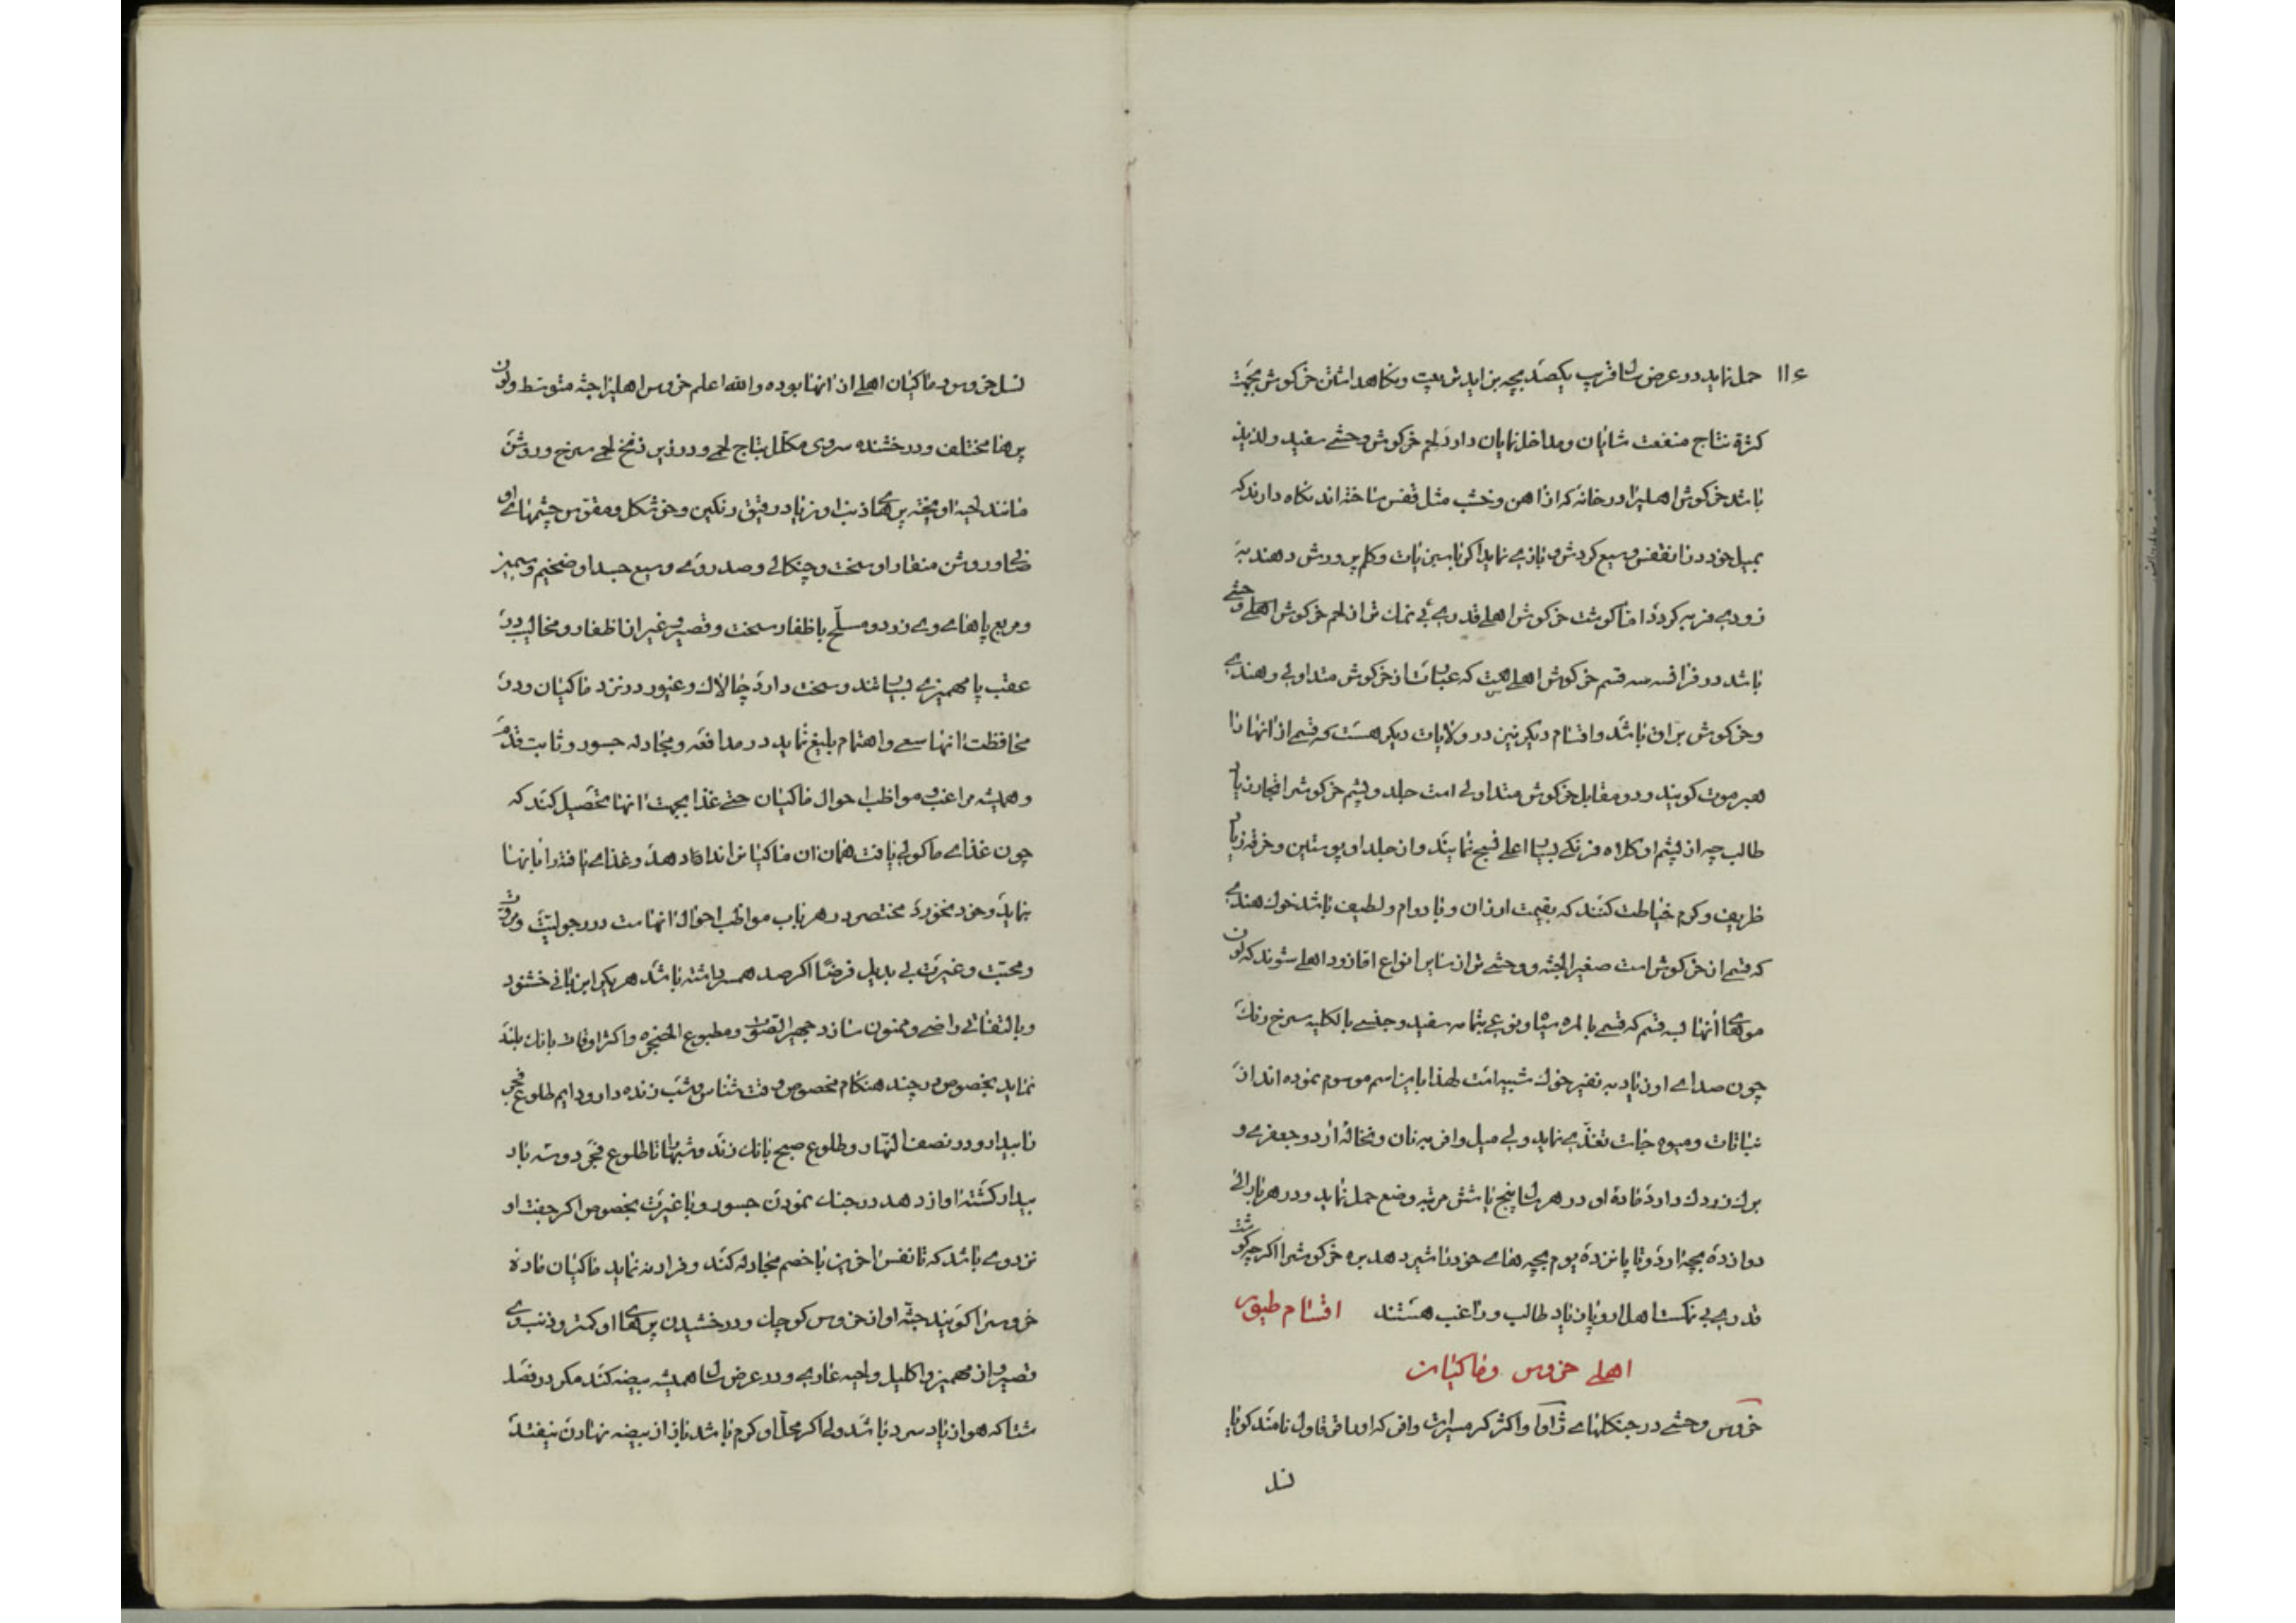 ۱۱۶
حمل نماید در عرض سال قریب یکصد بچه بزاید تربیت و نگاهداشتن خرگوش بجهت
کثرة نتاج منفعت شایان و مداخل نمایان دارد لحم خرگوش وحشی سفید و لذیذ
باشد خرگوش اهلیرا در خانه که از اهن و خشب مثل قفس ساخته اند نگاه دارند که
بمیل خود در ان قفس وسیع گردش و بازی نماید اگر با سبزیات و کلم پرورش دهند به
زودی فربه گردد اما گوشت خرگوش اهلی قدری بی نمک تر از لحم خرگوش وحشی
باشد در فرانسه سه قسم خرگوش اهلی هست که عبارت از خرگوش متداولی و هندی
و خرگوش براق باشد و اقسام دیگر نیز در ولایات دیگر هست که قسمی از انها را
گویند و در مقابل خرگوش متداولی است جلد و پشم خرگوشرا تجار زیاد
طالب چه از پشم او کلاه فرنگی بسیار اعلی نسج نمایند و از جلد او پوستین و خرقه زیاد
ظریف و گرم خیاطت کنند که بقیمت ارزان و با دوام و لطیف باشد خوک هندی
که قسمی از خرگوش است صغیر الجثه و وحشی تر از سایر انواع اما زود اهلی شوند که لون
موهای انها بسه قسم که قسمی بالمره سیاه و نوعی بتمامه سفید و جنسی بالکلیه سرخ رنک
چون صدای او زیاد به نفیر خوک شبیه است لهذا باین اسم موسوم نموده اند از
نباتات و میوه جات تغذی نماید ولی میل وافر به نان و نخاله ارد و جعفری و
برک زردک دارد ماده او در هر سال پنج یا شش مرتبه وضع حمل نماید و در هر بار الی
دوازده بچه اورد و تا پانزده یوم بچه های خود را شیر دهد بره خرگوشرا اگر چه گوشت
قدری بی نمکست اهل اروپا زیاد طالب و راغب هستند اقسام طیور
اهلی خروس و ماکیان
خروس وحشی در جنگلهای ژاوا و اکثر گرمسیرات وافر که او را نامند گویا
نسل
نسل خروس و ماکیان اهلی از انها بوده والله اعلم خروس اهلیرا جثه متوسط و لون
پرها مختلف و درخشنده سر وی مکلل بتاج لحمی و در زیر زنخ لحمی سرخ و روشن
مانند لحیه اویخته پرهای ذنب او زیاد رقیق رنگین و خوش شکل و مقوس چشمهای او
و روشن منقار او سخت و چنگالی و صدر وی وسیع جسد او ضخیم و سمین
و مربع پاهای وی زرد و مسلح باظفار سخت و قصیر و غیر از اظفار و مخالیب در
عقب پا مهمیزی بسیار تند و سخت دارد چالاک و غیور در نزد ماکیان و در
محافظت انها سعی و اهتمام بلیغ نماید در مدافعه و مجادله جسور و ثابت قدم
و همیشه مراغب و مواظب احوال ماکیان حتی غذا بجهت انها تحصیل کند که
چون غذای ماکولی یافت همان ان ماکیانرا ندا در دهد و غذای یافته را بانها
نماید و خود نخورد مختصر در هر باب مواظب احوال انهاست در رجولیت و مروت
و محبت و غیرت بی بدیل فرضا اگر صد همسر داشته باشد هر یکرا بزبانی خشنود
و بالتفاتی راضی و ممنون سازد جهیر الصوت و مطبوع الحنجره و اکثر اوقات بانک بلند
نماید بخصوص در چند هنگام مخصوص وقت شناس و شب زنده دار و دایم طلوع فجر
تا بیدار و در نصف النهار و طلوع صبح بانک زند و شبها تا طلوع فجر دو سه بار
بیدار گشته اواز دهد در جنک نمودن جسور و با غیرت بخصوص اگر جفت او
نزد وی باشد که تا نفس اخرین با خصم مجادله کند و فرار نه نماید ماکیان ماده
خروسرا گویند جثه او از خروس کوچک و درخشیدن پرهای او کمتر و ذنب وی
قصیر و از مهمیز و اکلیل و لحیه عاری و در عرض سال همیشه بیضه کند مگر در فصل
شتا که هوا زیاد سرد باشد ولی اگر محل او گرم باشد باز از بیضه نهادن نیفتد